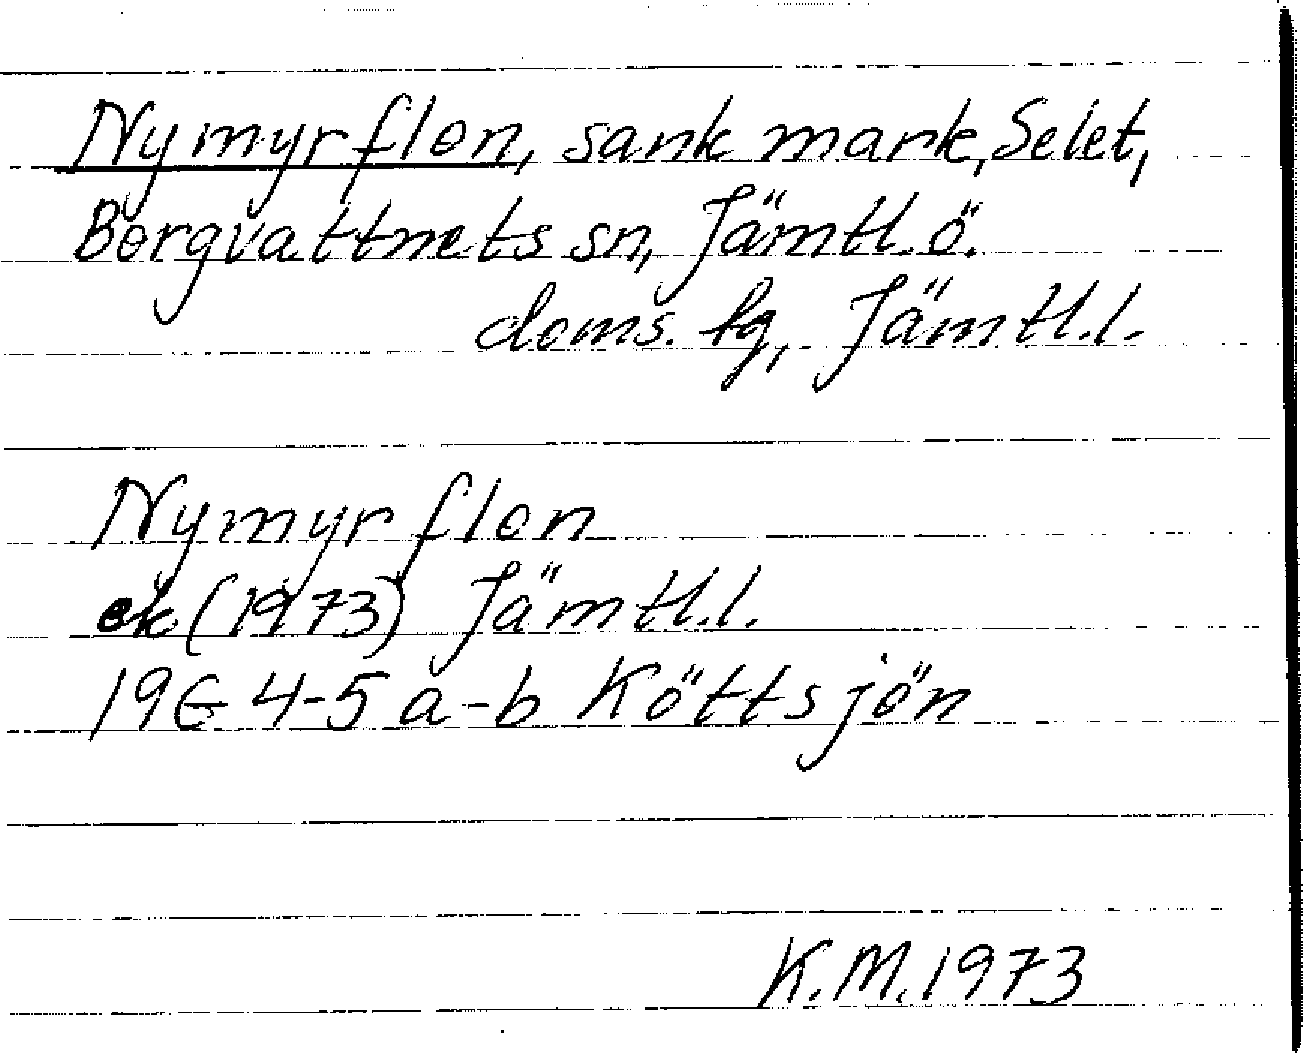 Nymyrflon, sank mark, Selet,
Borgvattnets sn, Jämtl. ö.
doms. tg, Jämtl. l.
Nymyrflon
ek (1973) Jämtl. l.
19G 4-5 a-b Köttsjön
K.M. 1973